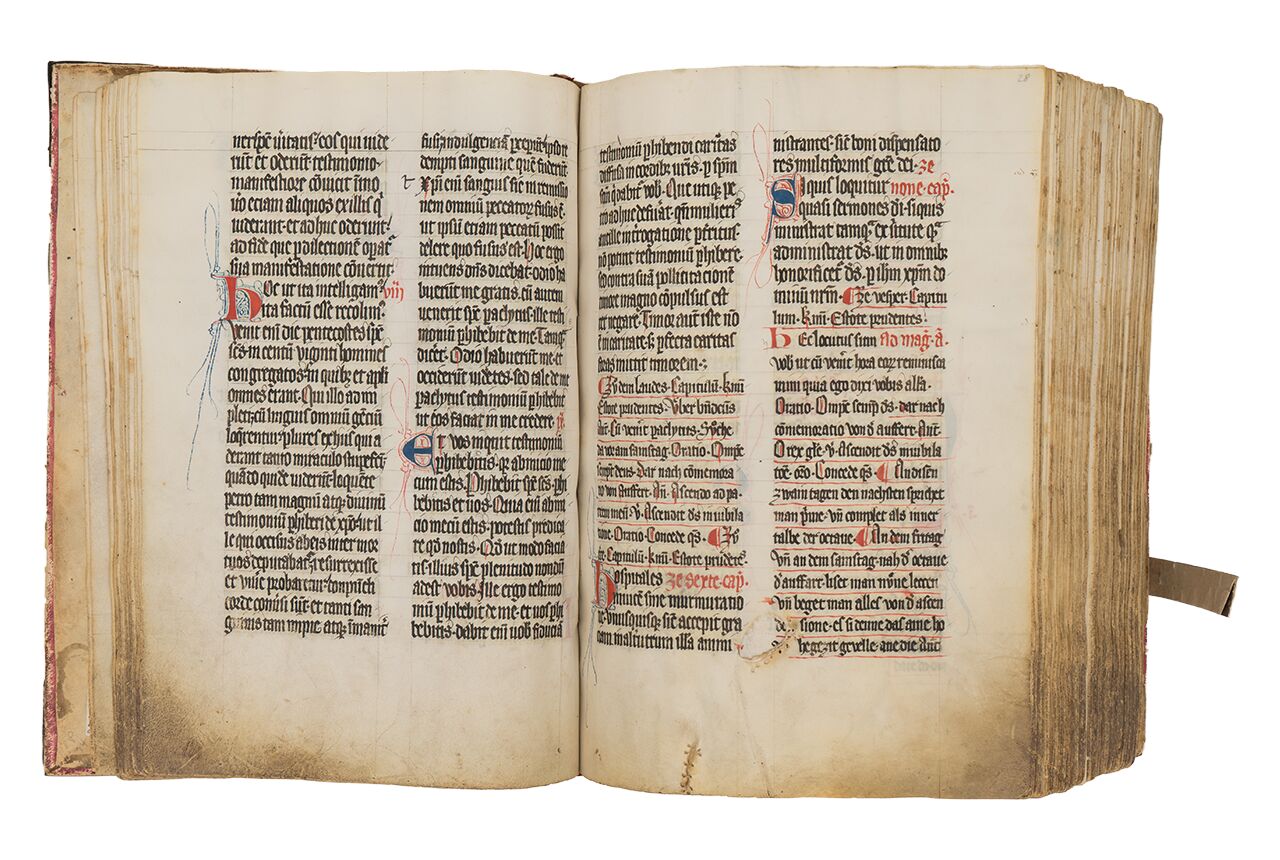 ner spē ūitatis· eos qui uide
rūt et oderūt testimonio
manifestiore cōuicit· īmo
ūo eciam aliquos ex illis q̄
uiderant· et adhuc oderūt·
ad fidē que p dilectionē opat᷑
sua manifestatione cōuertit·
Hoc ut ita intelligam᷒ viij
ita factū esse recolim᷒
Venit em̄ die pentecostes spc̄
sc̄s in centū viginti homines
congregatos· in quibꝫ et apl̄i
omnes erant· Qui illo adim
pleti cū linguis omniū gētiū
loq̄rentur· plures ex hijs qui a
derant tanto miraculo stupefc̄i·
quādo quidē uiderūt loquēte
petro tam magnū atqꝫ diuinū
testimoniū phiberi de xp̄o· ut il
le qui occisus ab eis inter mor
tuos deputabat᷑· resurrexisse
et viue probaret᷑· conpūcti
corde cōuersi sūt· et tanti san
guinis tam impie atqꝫ īmanit᷑
fusi indulgenciā recepūt· ipso re
dempti sanguine quē fuderūt·
Xp̄i em̄ sanguis sic in remissio
nem omniū peccatoꝝ fusus ē·
ut ipsū eciam peccatū possit
delere quo fusus est· Hoc ergo
intuens dn̄s dicebat· odio ha
buerūt me gratis· cū autem
uenerit spc̄ paclytus· ille testi
moniū phibebit de me· Tamqͣ
dicet· Odio habuerūt me· et
occiderūt uidētes· sed tale de me
paclytus testimoniū phibebit
ut eos faciat in me credere
Et vos inquit testimoniū
phibebitis· qꝛ ab inicio me
cum estis· Phibebit spc̄ sc̄s· phi
bebitis et uos· Quia em̄ ab ini
cio mecū estis· potestis predica
re qd̄ nostis· Qd̄ ut modo facia
tis· illius spc̄ plenitudo nondū
adest vobis· Ille ergo testimo
niū phibebit de me· et uos phi
bebitis· dabit em̄ uob fiducia
testimoniū phibendi caritas
diffusa in cordibꝫ uris· p spm̄
scm̄ qͥ dabit᷑ vob· Que utiqꝫ pe
tro adhuc defuit· qn̄ mulieris
ancille interrogatione pterritus·
nō potuit testimoniū phibere·
sed contra suā pollicitacionē
timore magno cōpulsus est
ter negare· Timor aut iste nō
ē in caritate· sꝫ pfecta caritas
foras mittit timorem·
Ze den laudes· Capitulū· Kmī
Estote prudentes· Vber bn̄dictus
añ· Cū venit paclytus· Suche
da vor am samstag· Oratio· Omps
sempit̄ deus· dar nach cōmemora
tio von d' auffert· An̄· Ascendo ad pa
trem meū· V̄· Ascendit d's in iubila
tione· Oratio· Concede qs· Ze
ꝛc· Capitulū· Kmī· Estote prudētes
Hospitales ze sexte cap̄·
inuicē sine murmuratio
ne· vnusquisqꝫ sicut accepit gra
ciam in alterutrum illā ammi
nistrantes· sic̄ boni dispensato
res multiformis grē dei· ze
Siquis loquitur none cap̄·
quasi sermones dī· siquis
ministrat tamqͣ ex ūtute qͣ
administrat d's· ut in omnibꝫ
honorificet᷑ d's· p ihm̄ xpm̄ do
minū nrm̄· Ze vesper Capitu
lum· Kmī· Estote prudentes·
Hec locutus sum Ad maḡ· ā·
vob· ut cū venit hora eoꝝ reminisca
mini quia ego dixi vobis alla·
Oratio· Omps semp d's· dar nach
cōmemoratio von d' auffert· Ant̄·
O rex glē· V̄· Ascendit d's in iubila
tōe· oro· Concede qs· An disen
zwain tagen den nachsten sprichet
man prime· vn̄ complet als inner
talbe der octaue An dem fritag
vn̄ an dem samstag nah d' octaue
d' auffart· liset man none leccen
vn̄ beget man alles von d' ascen
sione· es si denne das aine ho
hegezit gevelle· ane die Ant̄
28